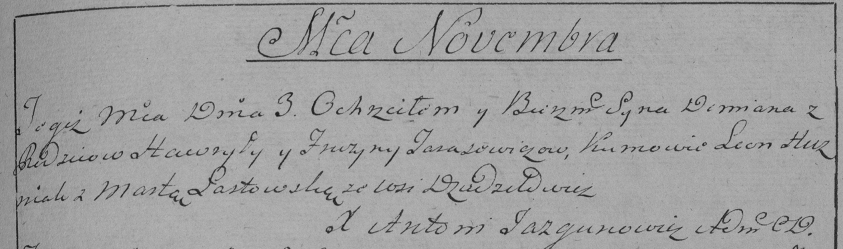 Mca Novembra
Togoż Mca Dnia 3. Ochrzciłem y Bierzm Syna Demiana z
Rodzicow Hawryły y Tarasowiczow, Kumowie Leon Huz
niak z Martą Łastowską ze wsi
X Antoni Jazgunowicz Adm CD.